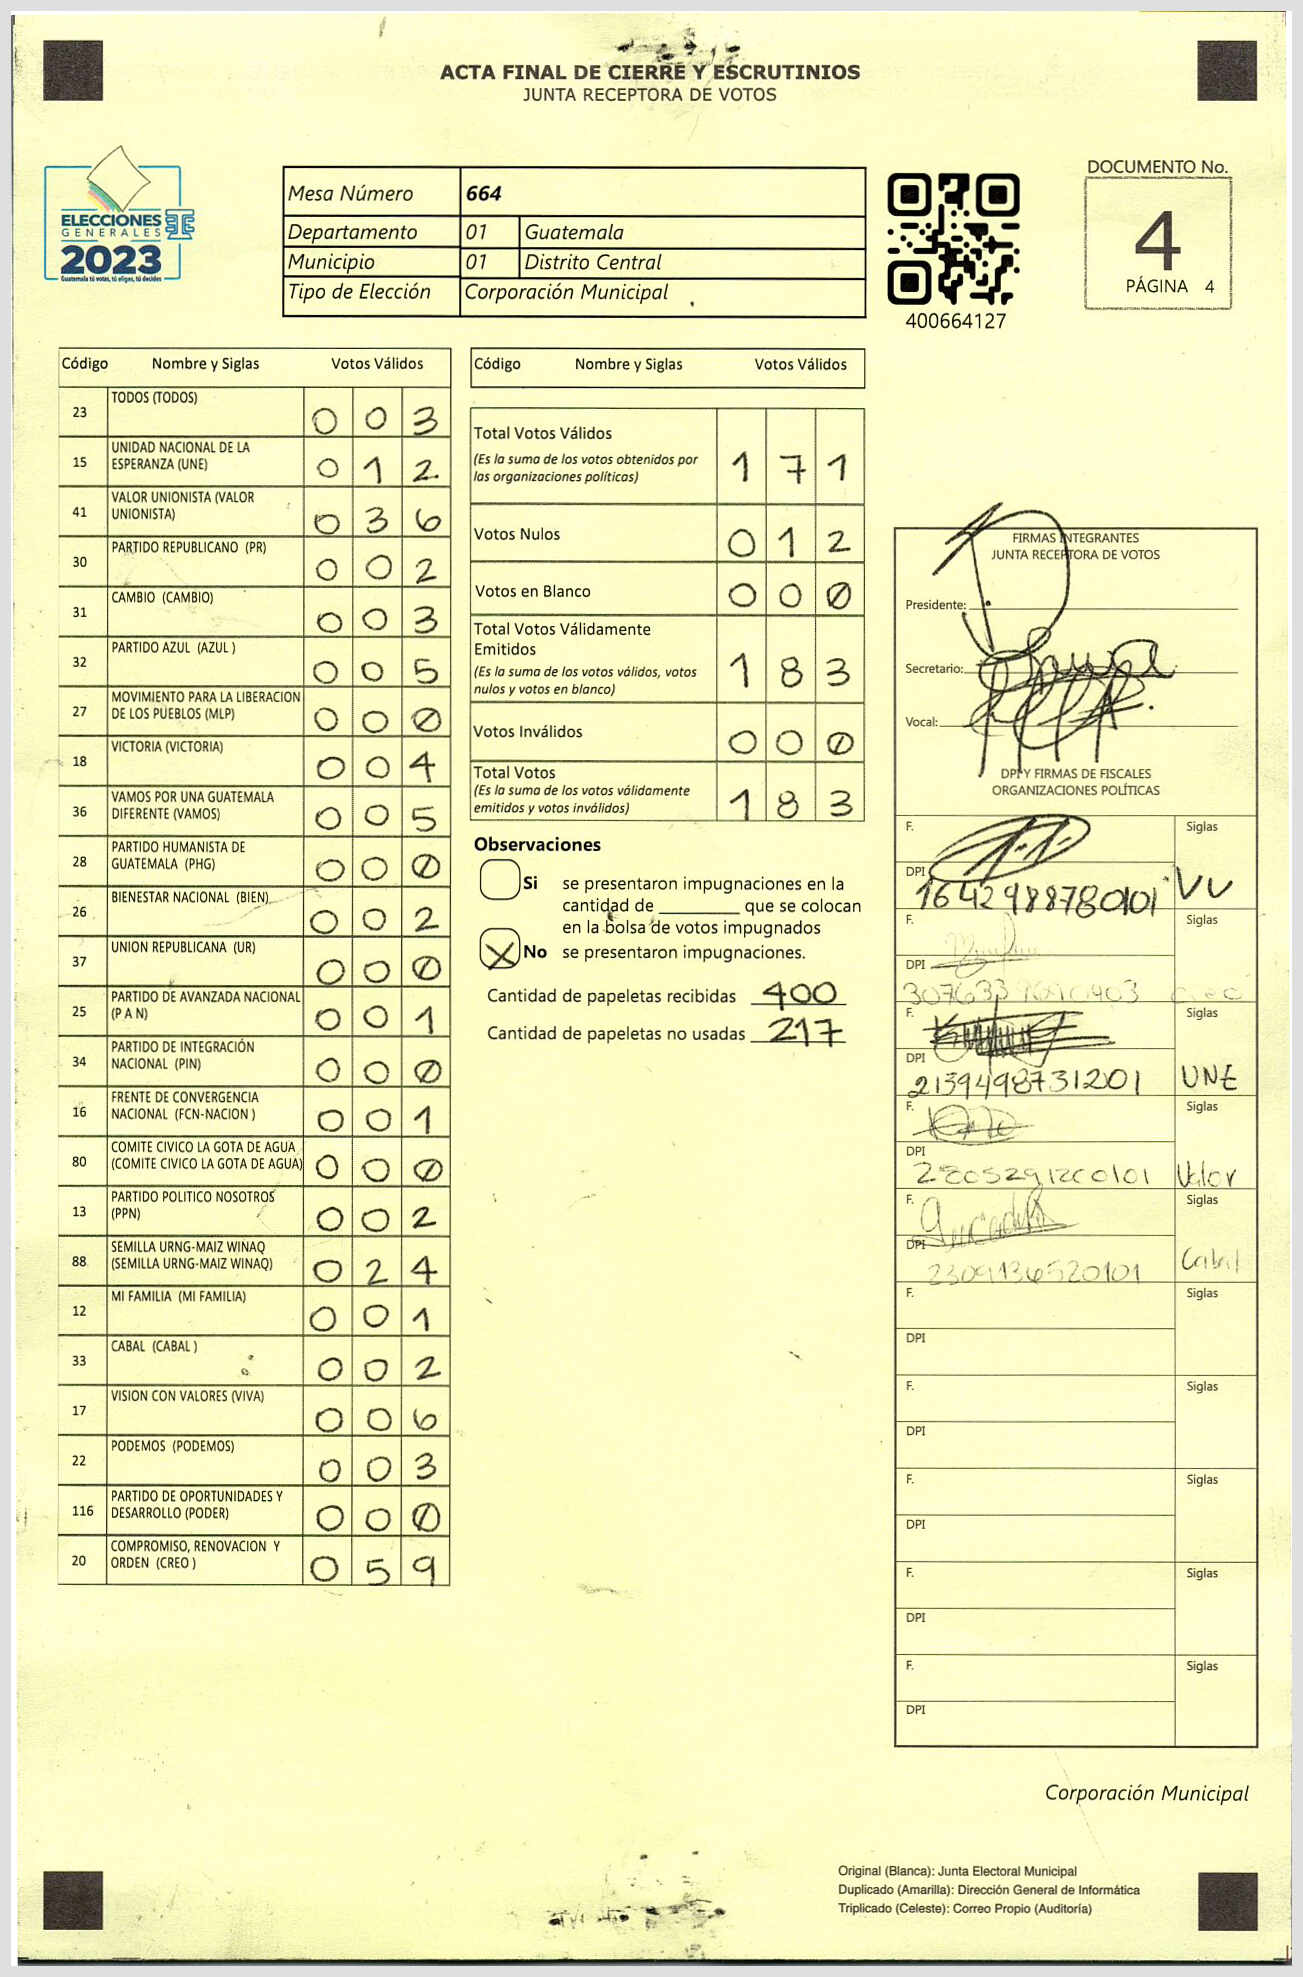 ACTA FINAL DE CIERRE Y ESCRUTINIOS
JUNTA RECEPTORA DE VOTOS
ELECCIONES
GENERALES
2023
Guatemala tú votas, tú eliges, tú decides
Mesa Número 664
Departamento 01 Guatemala
Municipio 01 Distrito Central
Tipo de Elección Corporación Municipal
400664127
DOCUMENTO No.
4
PÁGINA 4
Código Nombre y Siglas Votos Válidos
23 TODOS (TODOS) 0 0 3
15 UNIDAD NACIONAL DE LA
ESPERANZA (UNE) 0 1 2
41 VALOR UNIONISTA (VALOR
UNIONISTA) 0 3 6
30 PARTIDO REPUBLICANO (PR) 0 0 2
31 CAMBIO (CAMBIO) 0 0 3
32 PARTIDO AZUL (AZUL ) 0 0 5
27 MOVIMIENTO PARA LA LIBERACION
DE LOS PUEBLOS (MLP) 0 0 0
18 VICTORIA (VICTORIA) 0 0 4
36 VAMOS POR UNA GUATEMALA
DIFERENTE (VAMOS) 0 0 5
28 PARTIDO HUMANISTA DE
GUATEMALA (PHG) 0 0 0
26 BIENESTAR NACIONAL (BIEN) 0 0 2
37 UNION REPUBLICANA (UR) 0 0 0
25 PARTIDO DE AVANZADA NACIONAL
(P A N) 0 0 1
34 PARTIDO DE INTEGRACIÓN
NACIONAL (PIN) 0 0 0
16 FRENTE DE CONVERGENCIA
NACIONAL (FCN-NACION ) 0 0 1
80 COMITE CIVICO LA GOTA DE AGUA
(COMITE CIVICO LA GOTA DE AGUA) 0 0 0
13 PARTIDO POLITICO NOSOTROS
(PPN) 0 0 2
88 SEMILLA URNG-MAIZ WINAQ
(SEMILLA URNG-MAIZ WINAQ) 0 2 4
12 MI FAMILIA (MI FAMILIA) 0 0 1
33 CABAL (CABAL ) 0 0 2
17 VISION CON VALORES (VIVA) 0 0 6
22 PODEMOS (PODEMOS) 0 0 3
116 PARTIDO DE OPORTUNIDADES Y
DESARROLLO (PODER) 0 0 0
20 COMPROMISO, RENOVACION Y
ORDEN (CREO ) 0 5 9
Código Nombre y Siglas Votos Válidos
Total Votos Válidos
(Es la suma de los votos obtenidos por
las organizaciones políticas) 1 7 1
Votos Nulos 0 1 2
Votos en Blanco 0 0 0
Total Votos Válidamente
Emitidos
(Es la suma de los votos válidos, votos
nulos y votos en blanco) 1 8 3
Votos Inválidos 0 0 0
Total Votos
(Es la suma de los votos válidamente
emitidos y votos inválidos) 1 8 3
Observaciones
Si se presentaron impugnaciones en la
cantidad de ________ que se colocan
en la bolsa de votos impugnados
X No se presentaron impugnaciones.
Cantidad de papeletas recibidas 400
Cantidad de papeletas no usadas 217
FIRMAS INTEGRANTES
JUNTA RECEPTORA DE VOTOS
Presidente:
Secretario:
Vocal:
DPI Y FIRMAS DE FISCALES
ORGANIZACIONES POLÍTICAS
F. Siglas
DPI 1642988780101 VU
F. Siglas
DPI
F. Siglas
DPI 2159498731201 UNE
F. Siglas
DPI Valor
F. Siglas
DPI 2309136520101 Cabal
F. Siglas
DPI
F. Siglas
DPI
F. Siglas
DPI
F. Siglas
DPI
F. Siglas
DPI
Corporación Municipal
Original (Blanca): Junta Electoral Municipal
Duplicado (Amarilla): Dirección General de Informática
Triplicado (Celeste): Correo Propio (Auditoría)